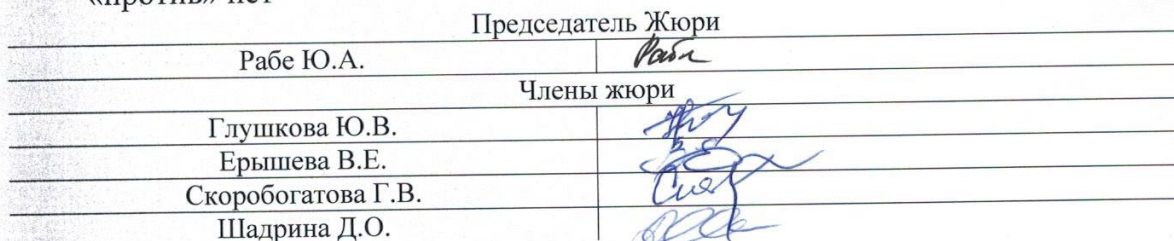 «против» нет
Председатель Жюри
Рабе Ю.А.
Члены жюри
Глушкова Ю.В.
Ерышева В.Е.
Скоробогатова Г.В.
Шадрина Д.О.